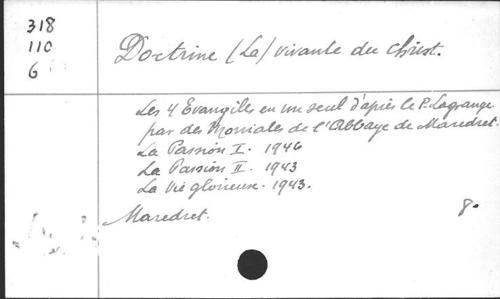 318
110
6
Doctrine (La) vivante du Christ.
Les 4 Evangiles en un seul d'après le P. Lagrange
par des Moniales de l'Abbaye de Maredret.
La Passion I. 1946
La Passion II. 1943
La Vie glorieuse. 1943.
Maredret. 8°